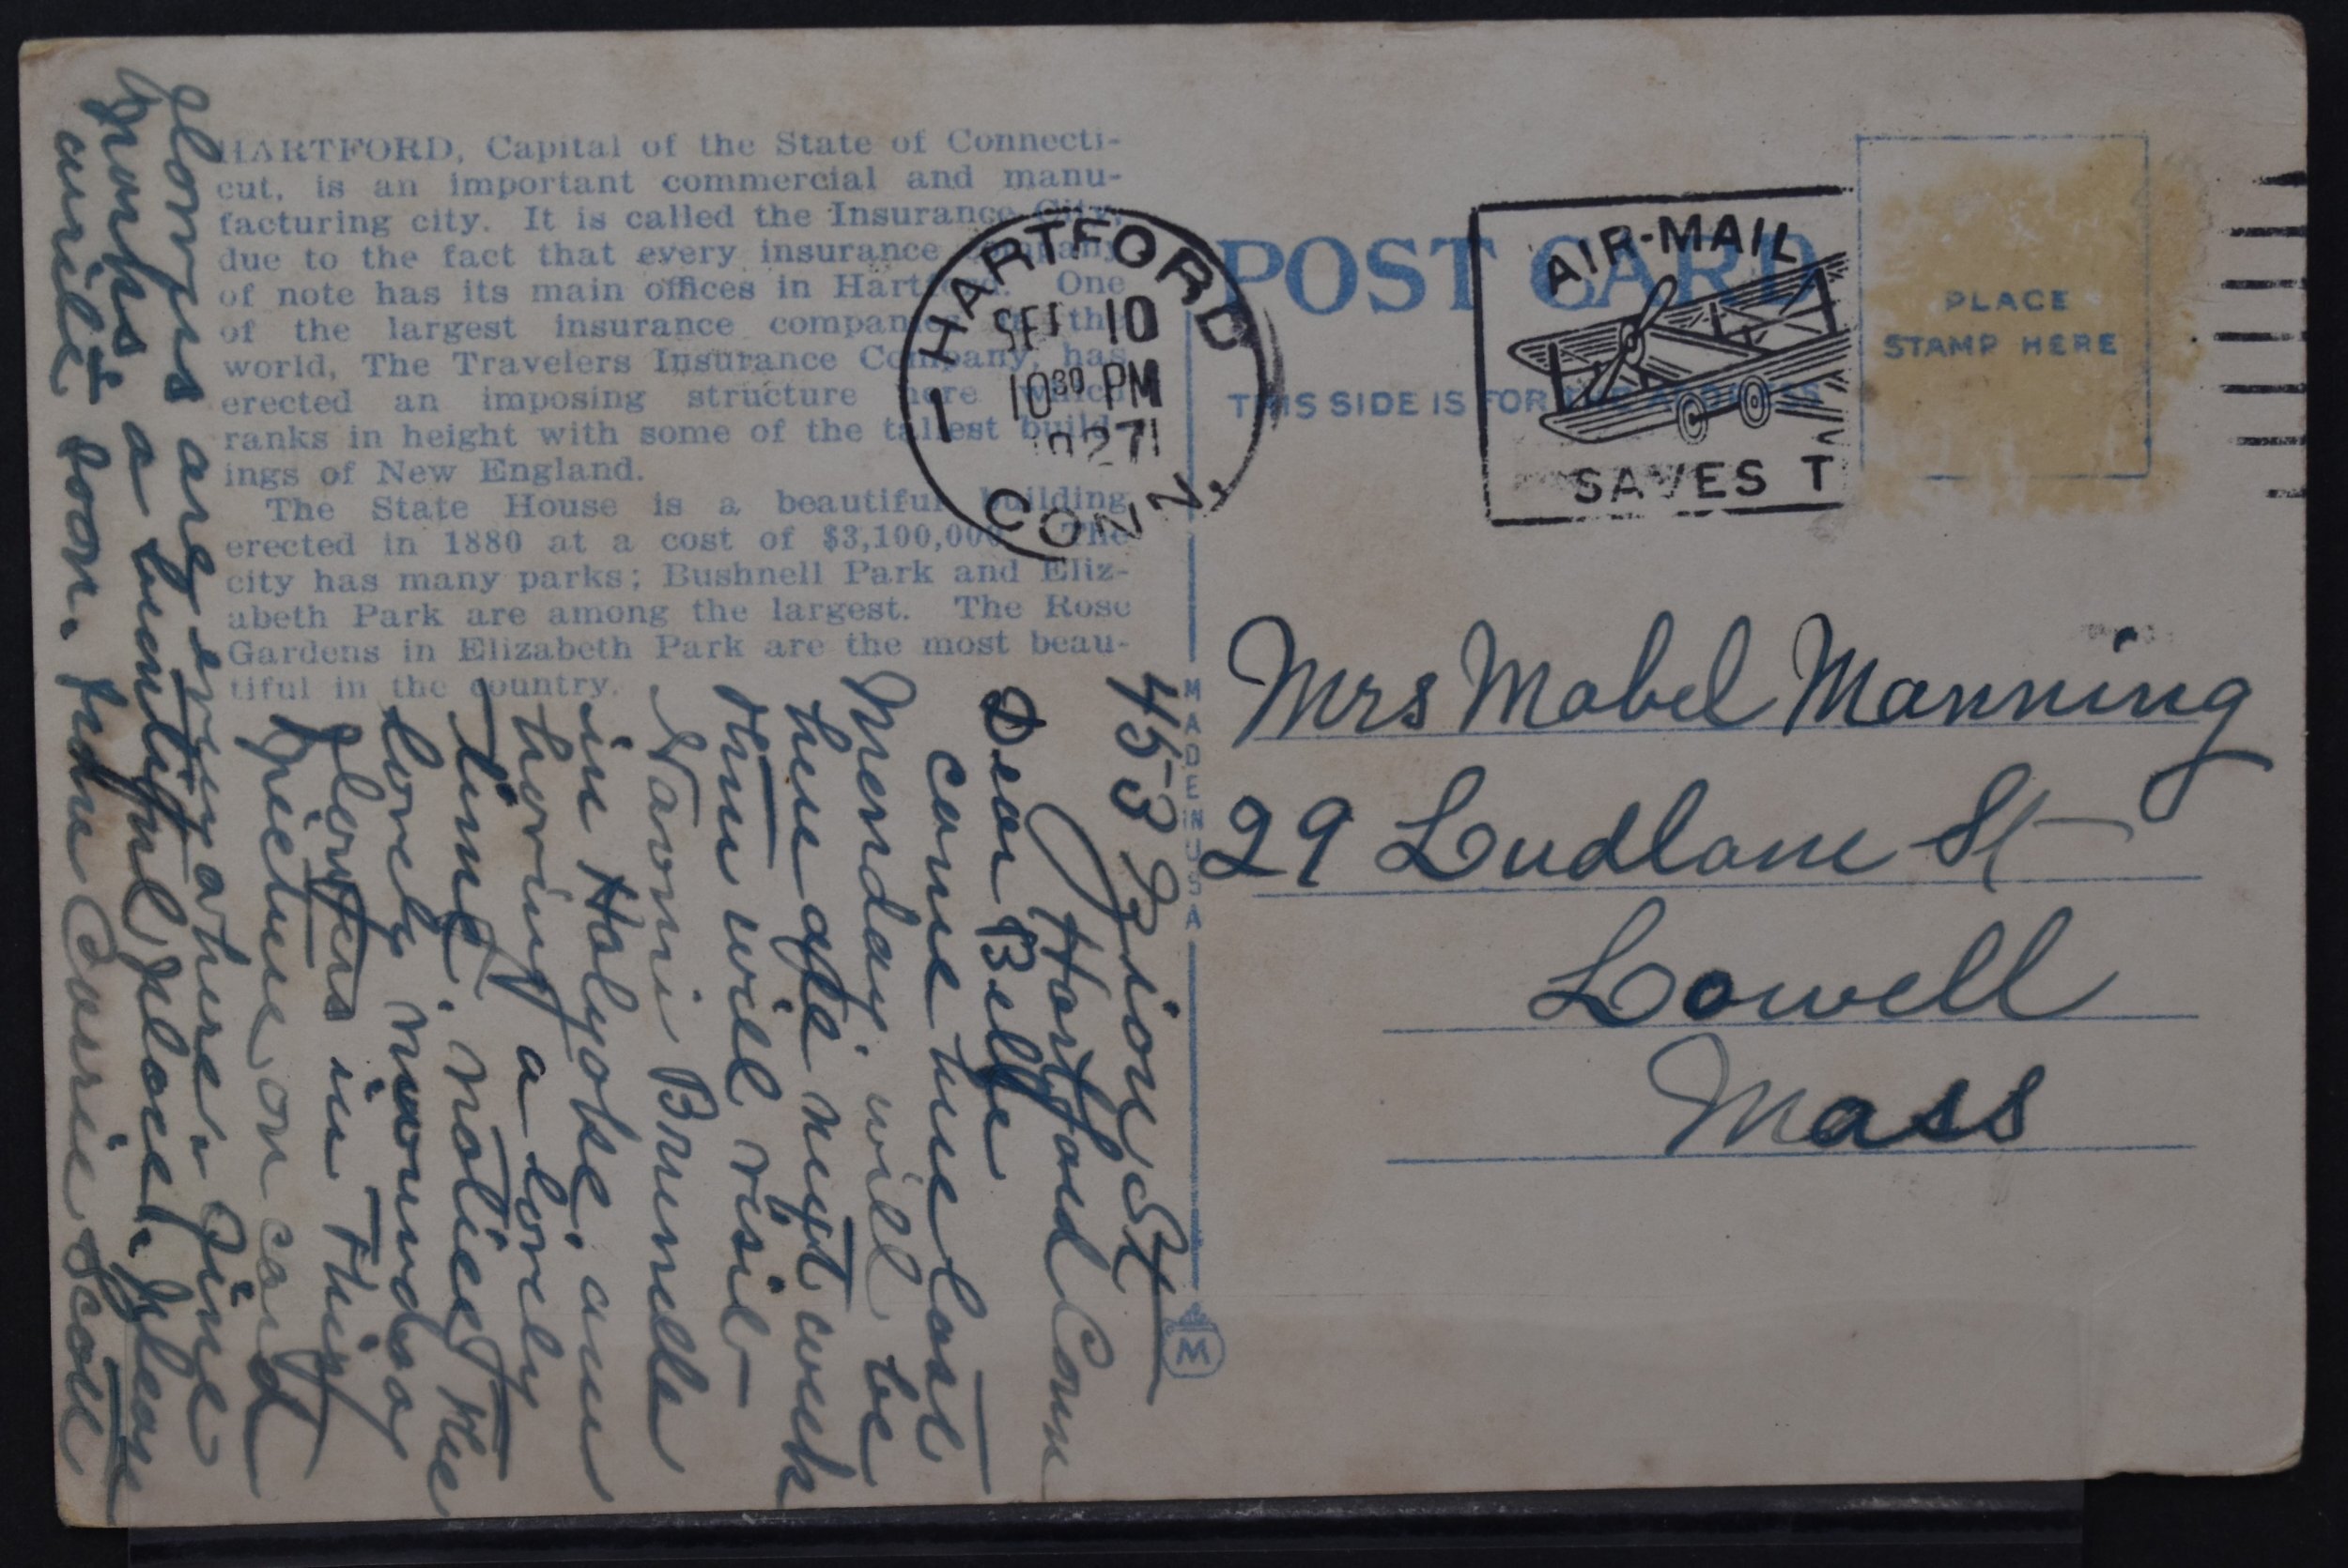 HARTFORD, Capital of the State of Connecti-
cut, is an important commercial and manu-
facturing city. It is called the Insurance City,
due to the fact that every insurance company
of note has its main offices in Hartford. One
of the largest insurance companies in the
world, The Travelers Insurance Company, has
erected an imposing structure here which
ranks in height with some of the tallest build-
ings of New England.
The State House is a beautiful building
erected in 1880 at a cost of $3,100,000. The
city has many parks; Bushnell Park and Eliz-
abeth Park are among the largest. The Rose
Gardens in Elizabeth Park are the most beau-
tiful in the country.
HARTFORD
SEP 10
10 30 PM
1927
1
CONN.
POST CARD
THIS SIDE IS FOR THE ADDRESS
AIR-MAIL
SAVES T
PLACE
STAMP HERE
MADE IN U S A
M
Mrs Mabel Manning
29 Ludlam St
Lowell
Mass
453 Zion St
Hartford Conn
Dear Belle
came here last
Monday will be
here next week
then will visit
Naomi Brunelle
in Holyoke. am
having a lovely
time. notice the
lovely mound of
flowers in this
picture on card
glorious are everywhere. Fine
parks & a beautiful place. please
write soon. Carrie Scott